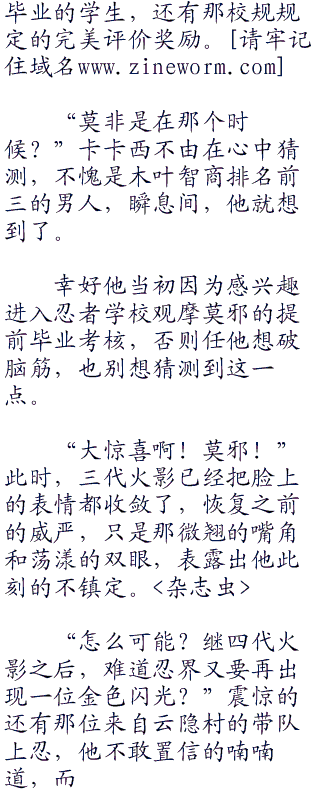 毕业的学生，还有那校规规
定的完美评价奖励。[请牢记
住域名www.zineworm.com]
“莫非是在那个时
候？”卡卡西不由在心中猜
测，不愧是木叶智商排名前
三的男人，瞬息间，他就想
到了。
幸好他当初因为感兴趣
进入忍者学校观摩莫邪的提
前毕业考核，否则任他想破
脑筋，也别想猜测到这一
点。
“大惊喜啊！莫邪！”
此时，三代火影已经把脸上
的表情都收敛了，恢复之前
的威严，只是那微翘的嘴角
和荡漾的双眼，表露出他此
刻的不镇定。<杂志虫>
“怎么可能？继四代火
影之后，难道忍界又要再出
现一位金色闪光？”震惊的
还有那位来自云隐村的带队
上忍，他不敢置信的喃喃
道，而